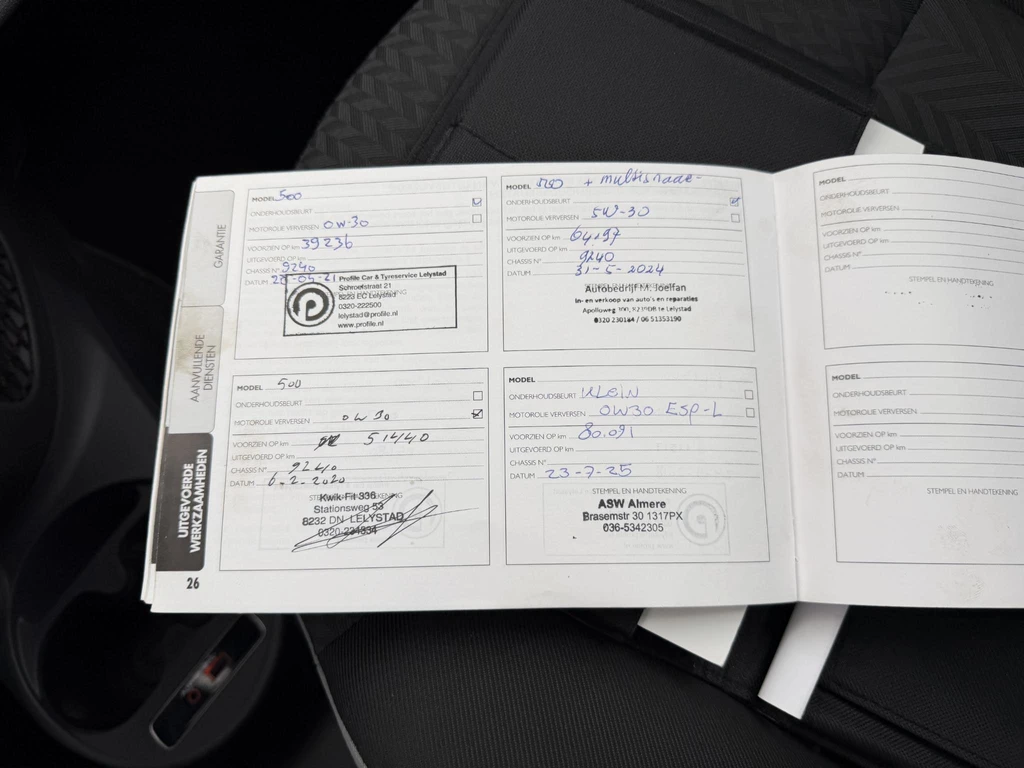 GARANTIE
AANVULLENDE
DIENSTEN
UITGEVOERDE
WERKZAAMHEDEN
26
MODEL 500
ONDERHOUDSBEURT
MOTOROLIE VERVERSEN 0W-30
VOORZIEN OP km 39236
UITGEVOERD OP km
CHASSIS N° 9240
DATUM
Profile Car & Tyreservice Lelystad
Schroefstraat 21
8223 EC Lelystad
0320-222500
lelystad@profile.nl
www.profile.nl
MODEL 500
ONDERHOUDSBEURT
MOTOROLIE VERVERSEN 0W30
VOORZIEN OP km 51440
UITGEVOERD OP km
CHASSIS N° 9240
DATUM 6-2-2020
Kwik-Fit 336
Stationsweg 53
8232 DN LELYSTAD
0320-234334
MODEL 500 +
ONDERHOUDSBEURT
MOTOROLIE VERVERSEN 5W-30
VOORZIEN OP km
UITGEVOERD OP km
CHASSIS N° 9240
DATUM 31-5-2024
STEMPEL EN HANDTEKENING
Autobedrijf M. Joelfan
In- en verkoop van auto's en reparaties
Apolloweg te Lelystad
/ 06 51353190
MODEL
ONDERHOUDSBEURT KLEIN
MOTOROLIE VERVERSEN 0W30 ESP-L
VOORZIEN OP km 80.091
UITGEVOERD OP km
CHASSIS N°
DATUM 23-7-25
STEMPEL EN HANDTEKENING
ASW Almere
Brasemstr 30 1317PX
036-5342305
MODEL
ONDERHOUDSBEURT
MOTOROLIE VERVERSEN
VOORZIEN OP km
UITGEVOERD OP km
CHASSIS N°
DATUM
STEMPEL EN HANDTEKENING
MODEL
ONDERHOUDSBEURT
MOTOROLIE VERVERSEN
VOORZIEN OP km
UITGEVOERD OP km
CHASSIS N°
DATUM
STEMPEL EN HANDTEKENING